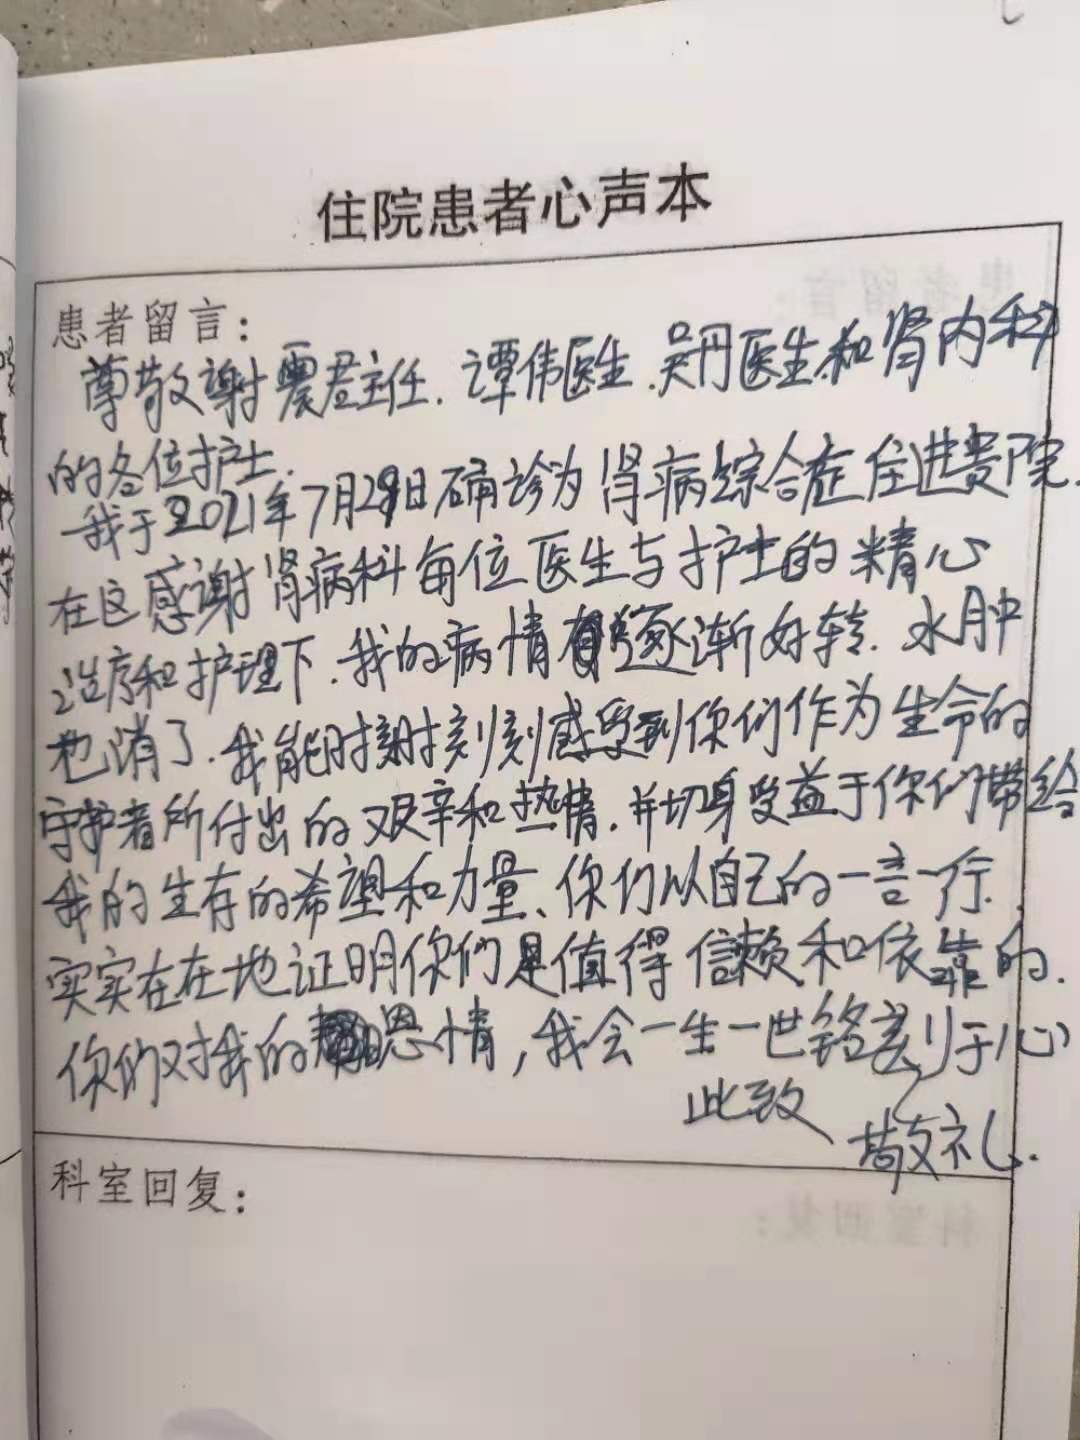 住院患者心声本
患者留言:
尊敬谢震君主任.谭伟医生.吴丹医生和肾内科
的各位护士.
我于2021年7月29日确诊为肾病综合症住进贵院.
在这感谢肾病科每位医生与护士的精心
治疗和护理下.我的病情逐渐好转.水肿
也消了.我能时时刻刻感受到你们作为生命的
守护者所付出的艰辛和热情.并切身受益于你们带给
我的生存的希望和力量、你们以自己的一言一行.
实实在在地证明你们是值得信赖和依靠的.
你们对我的恩情,我会一生一世铭刻于心
此致
敬礼.
科室回复: